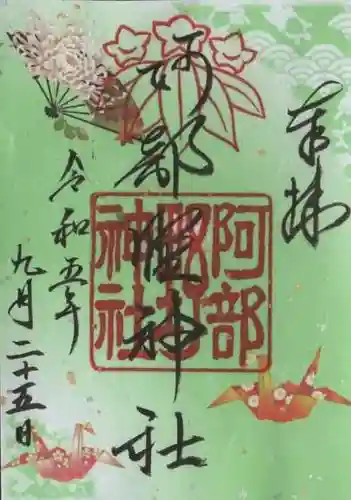 奉拝
阿部野神社
阿部
神社
令和五年
九月二十五日